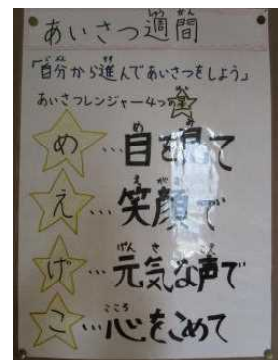 あいさつ週間
「自分から進んであいさつをしよう」
あいさつレンジャー4つの星
め…目を見て
え…笑顔で
げ…元気な声で
こ…心をこめて